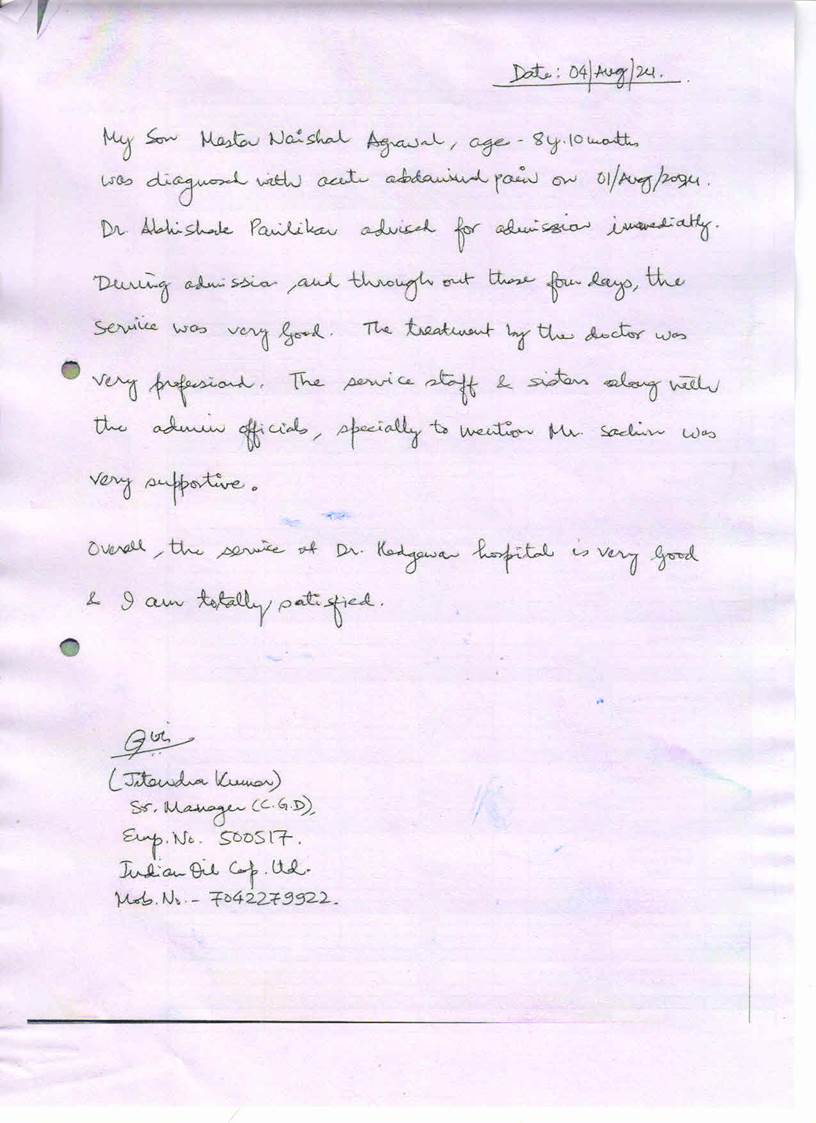 Date: 04/Aug/24.
My Son Master Naishal Agrawal, age - 8y.10 months
was diagnosed with acute abdominal pain on 01/Aug/2024.
Dr. Abhishek Panlikar advised for admission immediatly.
During admission, and through out these four days, the
service was very Good. The treatment by the doctor was
very professional. The service staff & sisters along with
the admin officials, specially to mention Mr. Sachin was
very supportive.
Overall, the service at Dr. Hedgewar hospital is very Good
& I am totally satisfied.
(Jitendra Kumar)
Sr. Manager (C.G.D),
Emp. No. 500517.
Indian Oil Cop. Ltd.
Mob. No. - 7042279922.